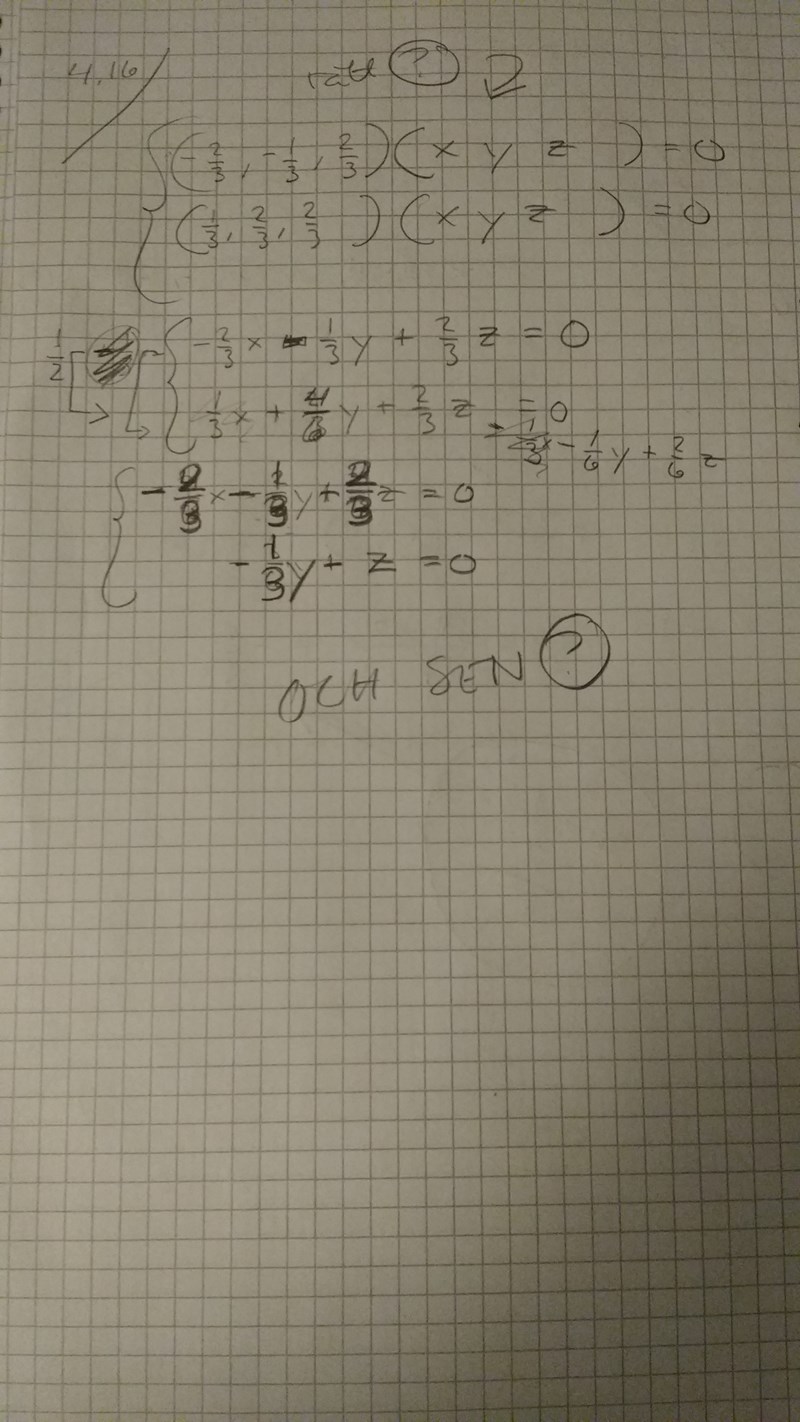 4.16 rätt ?
(-2/3, -1/3, 2/3)(x y z) = 0
(1/3, 2/3, 2/3)(x y z) = 0
1/2
-2/3 x - 1/3 y + 2/3 z = 0
1/3 x + 4/6 y + 2/3 z = 0
- 1/6 y + 2/6 z
-2/3 x - 1/3 y + 2/3 z = 0
-1/3 y + z = 0
OCH SEN ?